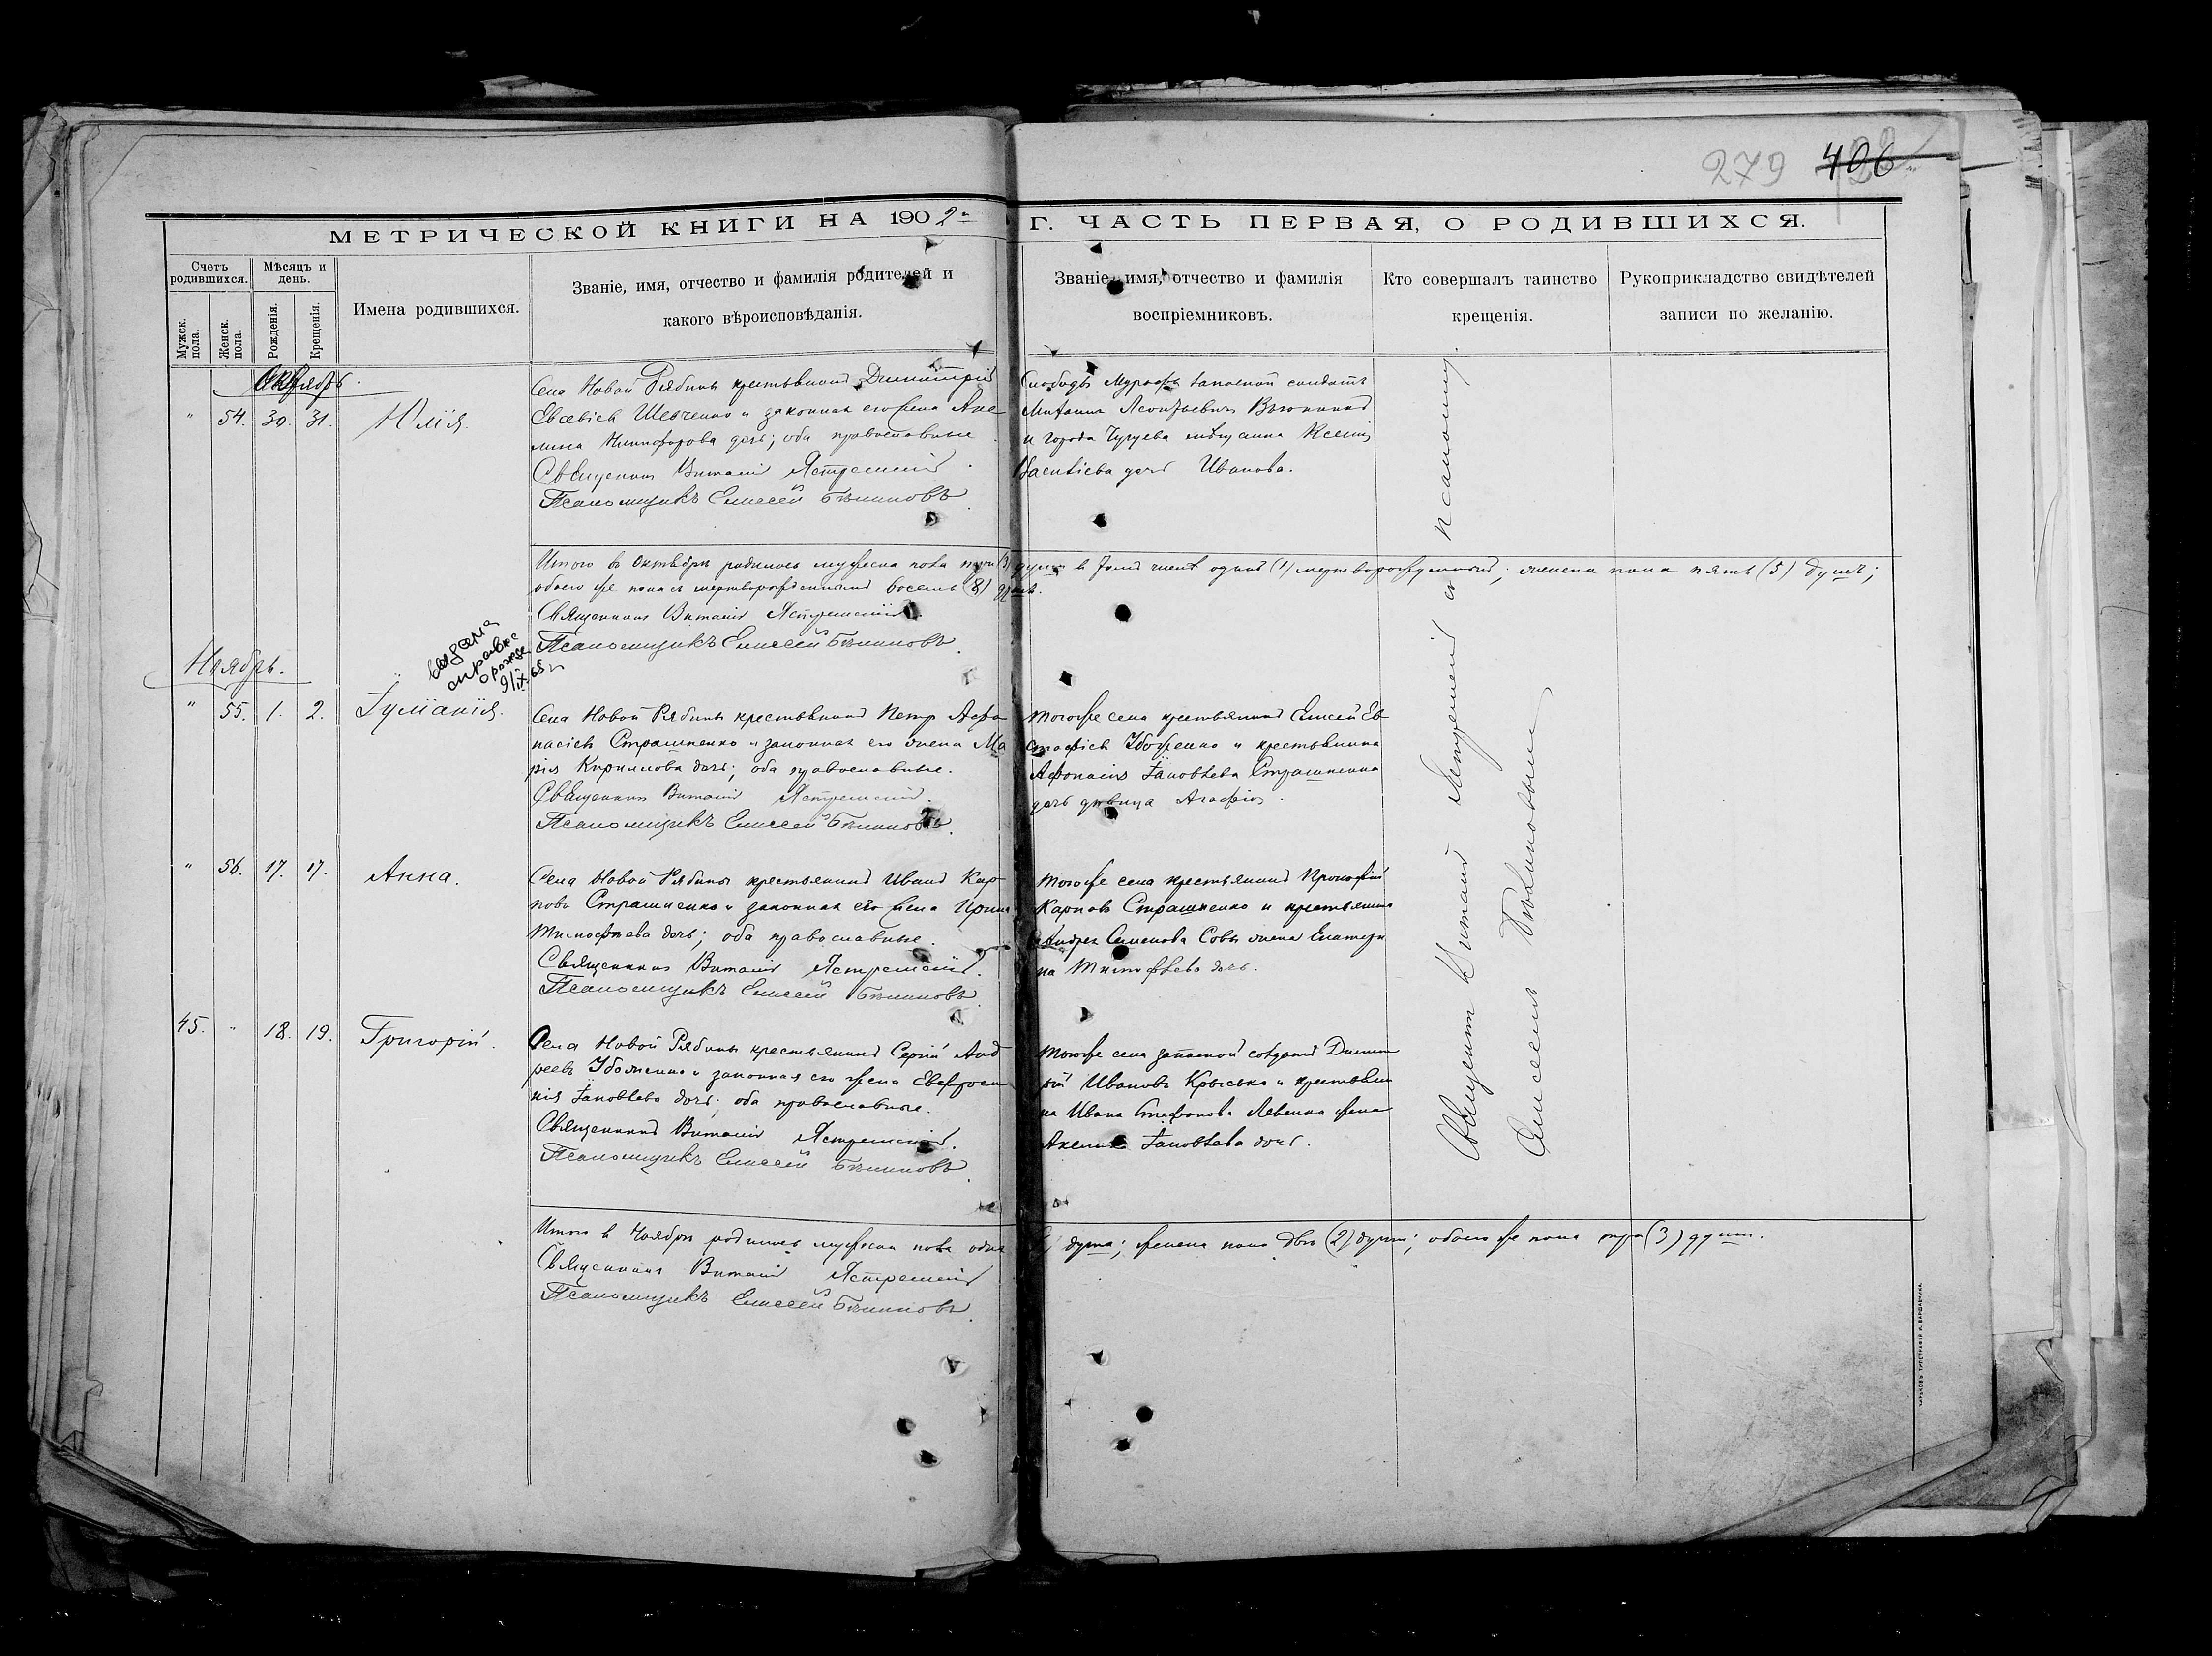 279 406
МЕТРИЧЕСКОЙ КНИГИ НА 1902 Г. ЧАСТЬ ПЕРВАЯ, О РОДИВШИХСЯ.
Счетъ родившихся.
Мужск. пола.
Женск. пола.
Мѣсяцъ и день.
Рожденія.
Крещенія.
Имена родившихся.
Званіе, имя, отчество и фамилія родителей и
какого вѣроисповѣданія.
Званіе, имя, отчество и фамилія
воспріемниковъ.
Кто совершалъ таинство
крещенія.
Рукоприкладство свидѣтелей
записи по желанію.
Октябрь.
" 54. 30. 31. Юлія.
Села Новой Рябины крестьянинъ Димитрій
Евсевіевъ Шевченко и законная его жена Аке-
лина Никифорова дочь; оба православные
Священникъ Виталій Ястремскій.
Псаломщикъ Елисей Блиновъ.
Слободы Мурафы запасной солдатъ
Леонтьевичъ
и города Чугуева мѣщанка Ксенія
дочь Иванова.
Итого въ Октябрѣ родилось мужеска пола три (3) души въ томъ числѣ одинъ (1) мертворожденный; женска пола пять (5) душъ;
обоего же пола съ мертворожденнымъ восемь (8) душъ.
Священникъ Виталій Ястремскій
Псаломщикъ Елисей Блиновъ.
выдана
справка
о рожд
9/IX 65 г
Ноябрь.
" 55. 1. 2. Іуліанія.
Села Новой Рябины крестьянинъ Петръ Афа-
насіевъ Страшненко и законная его жена Ма-
рія Кириллова дочь; оба православные.
Священникъ Виталій Ястремскій.
Псаломщикъ Елисей Блиновъ.
Тогоже села крестьянинъ Елисей Ев-
стафіевъ Убоженко и крестьянина
Афонасія Іаковлева Страшненка
дочь дѣвица Агафія.
" 56. 17. 17. Анна.
Села Новой Рябины крестьянинъ Иванъ Кар-
повъ Страшненко и законная его жена Ирина
Тимофеева дочь; оба православные.
Священникъ Виталій Ястремскій.
Псаломщикъ Елисей Блиновъ.
Тогоже села крестьянинъ Прокофій
Карповъ Страшненко и крестьянина
Андрея Семенова Совы жена Екатери-
на Тимофѣева дочь.
45. " 18. 19. Григорій.
Села Новой Рябины крестьянинъ Сергій Анд-
реевъ Убоженко и законная его жена Евфроси-
нія Іаковлева дочь; оба православные.
Священникъ Виталій Ястремскій.
Псаломщикъ Елисей Блиновъ.
Тогоже села запасной солдатъ Димит-
рій Ивановъ Крысько и крестьяни-
на Ивана Стефанова Левенка жена
Акелина Іаковлева дочь.
Итого въ Ноябрѣ родилось мужеска пола одна душа; женска пола двѣ (2) души; обоего же пола три (3) души.
Священникъ Виталій Ястремскій
Псаломщикъ Елисей Блиновъ.
Священникъ Виталій Ястремскій съ псаломщ.
Елисеемъ Блиновымъ